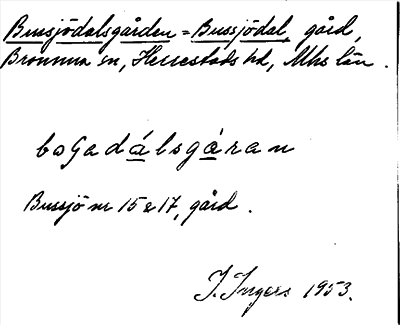 Bussjödalsgården = Bussjödal, gård,
Bromma sn, Herrestads hd, Mhs län.
Bussjö nr 15 & 17, gård.
I. Ingers 1953.